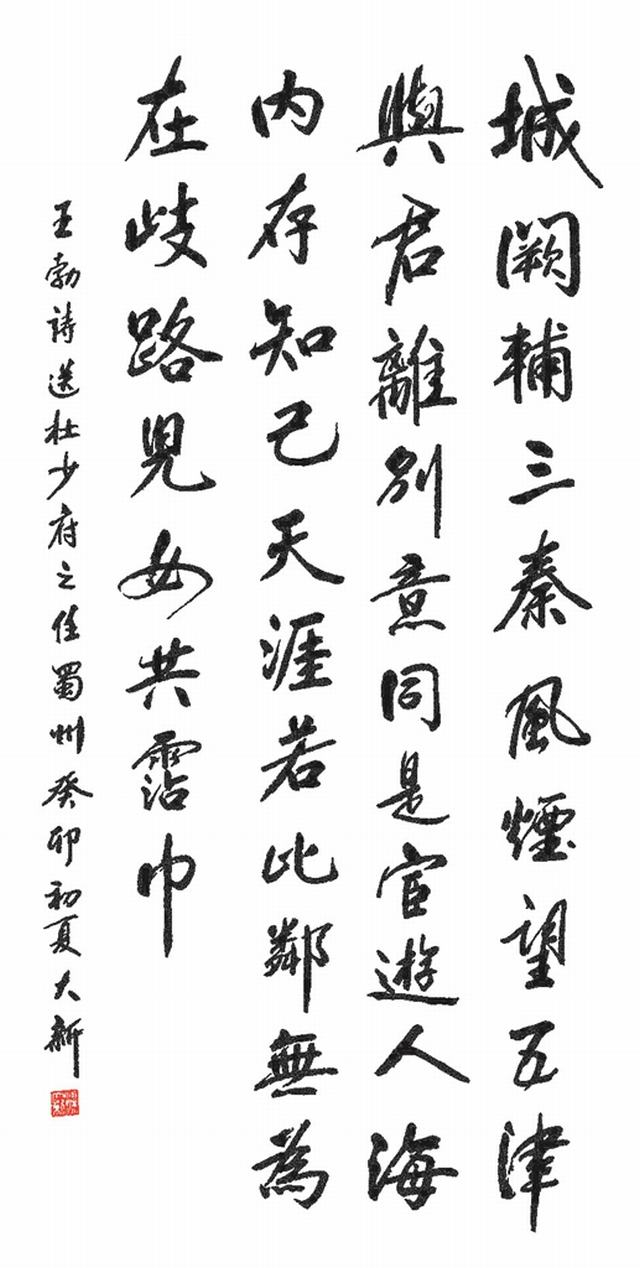 城闕輔三秦風煙望五津
與君離別意同是宦遊人海
内存知己天涯若比鄰無為
在歧路兒女共霑巾
王勃詩送杜少府之任蜀州癸卯初夏大新